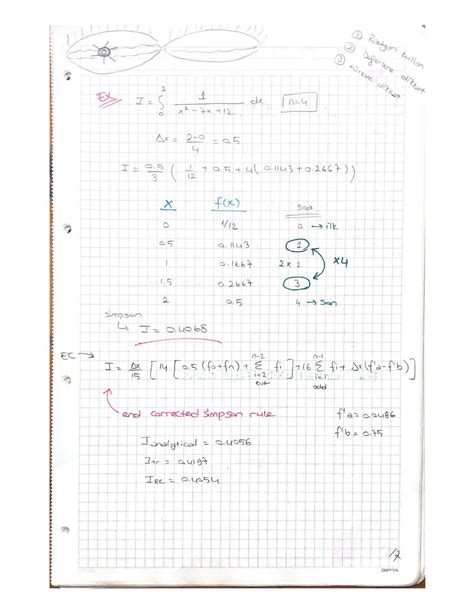 ① Radyan kullan
② Değerlere dikkat
③ türeve dikkat
Ex I = ∫₀² 1/(x² - 7x + 12) dx n=4
Δx = (2-0)/4 = 0.5
I = 0.5/3 ( 1/12 + 0.5 + 4( 0.1143 + 0.2667)
x f(x) Sıra
0 1/12 0 → ilk
0.5 0.1143 1
1 0.1667 2x 2 x4
1.5 0.2667 3
2 0.5 4 → Son
Simpson
↳ I = 0.4068
EC → I = Δx/15 [14 [0.5 (f0+fn) + Σ(i=2, even)^(n-2) fi] + 16 Σ(i=1, odd)^(n-1) fi + Δx(f'a - f'b)]
end corrected Simpson rule
f'a = 0.0486
f'b = 0.75
I analytical = 0.4056
Itr = 0.4197
Iec = 0.4054